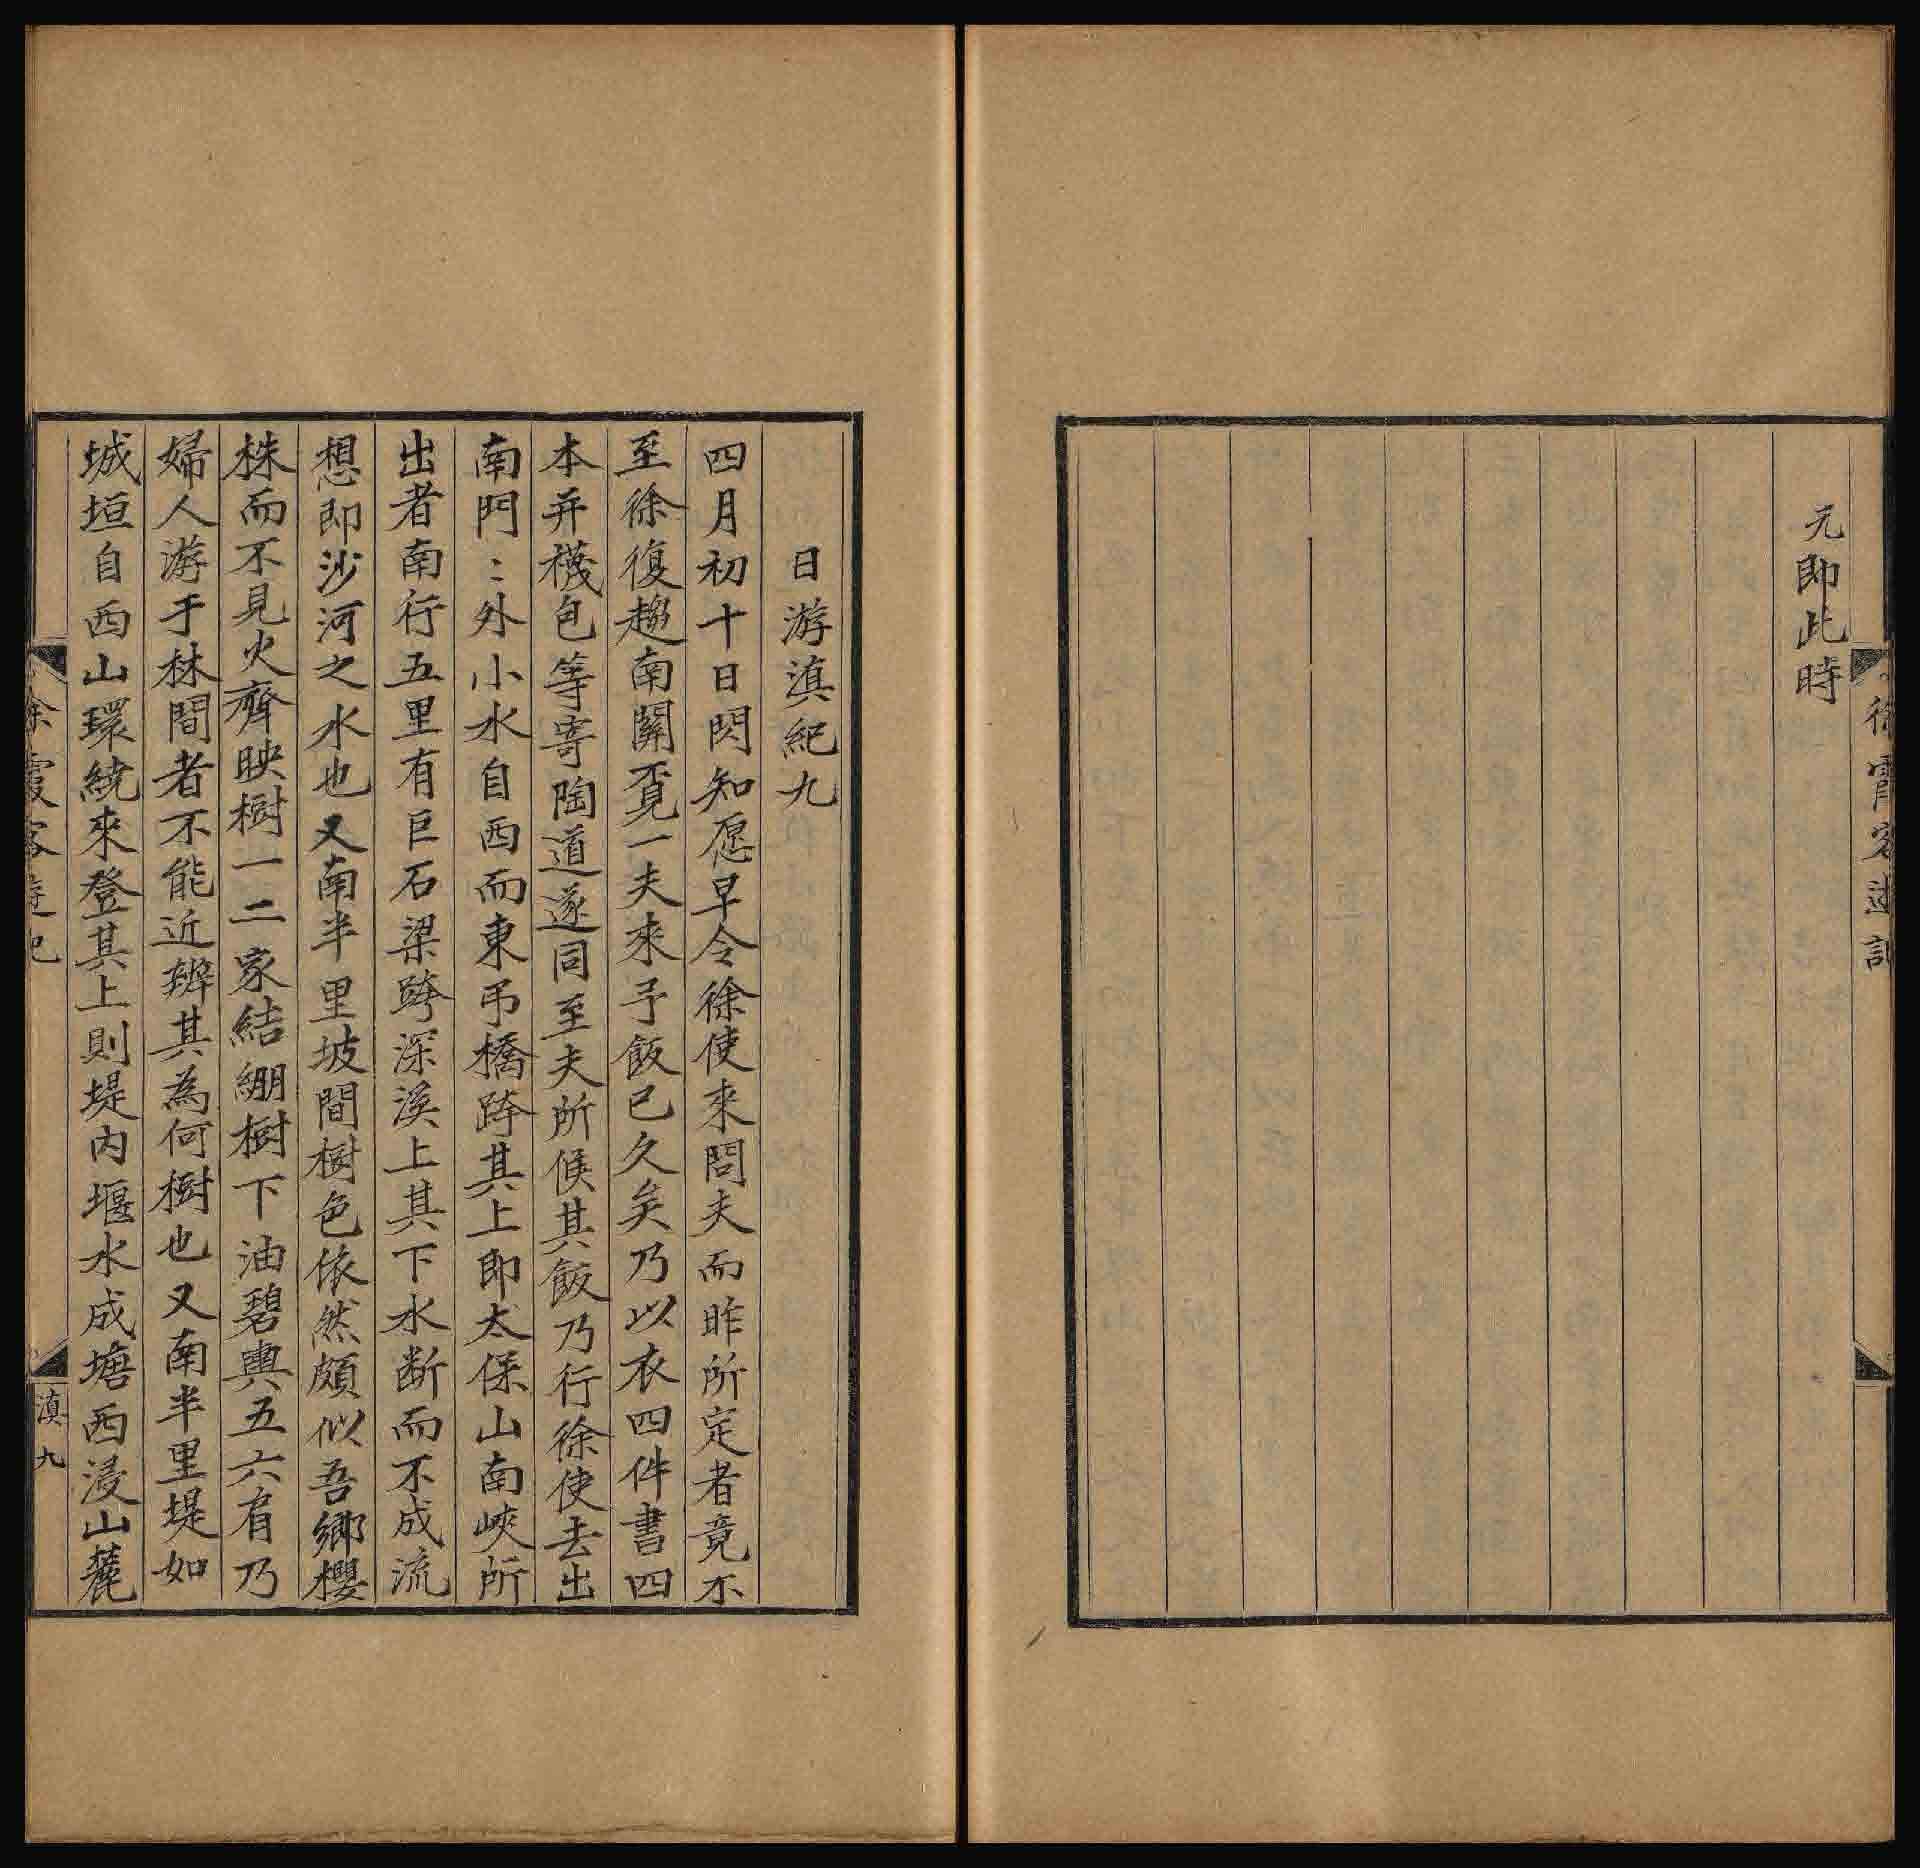 徐霞客遊記
元即此時
日游滇紀九
四月初十日閃知愿早令徐使來問夫而昨所定者竟不
至徐復趨南關覔一夫來予飯已久矣乃以衣四件書四
本并襪包等寄陶道遂同至夫所候其飯乃行徐使去出
南門〻外小水自西而東弔橋跨其上即太保山南峽所
出者南行五里有巨石梁跨深溪上其下水断而不成流
想即沙河之水也又南半里坡間樹色依然頗似吾鄉櫻
株而不見火齊映樹一二家結綳樹下油碧輿五六肩乃
婦人游于林間者不能近辨其為何樹也又南半里堤如
城垣自西山環繞來登其上則堤内堰水成塘西浸山麓
徐霞客遊記
滇九